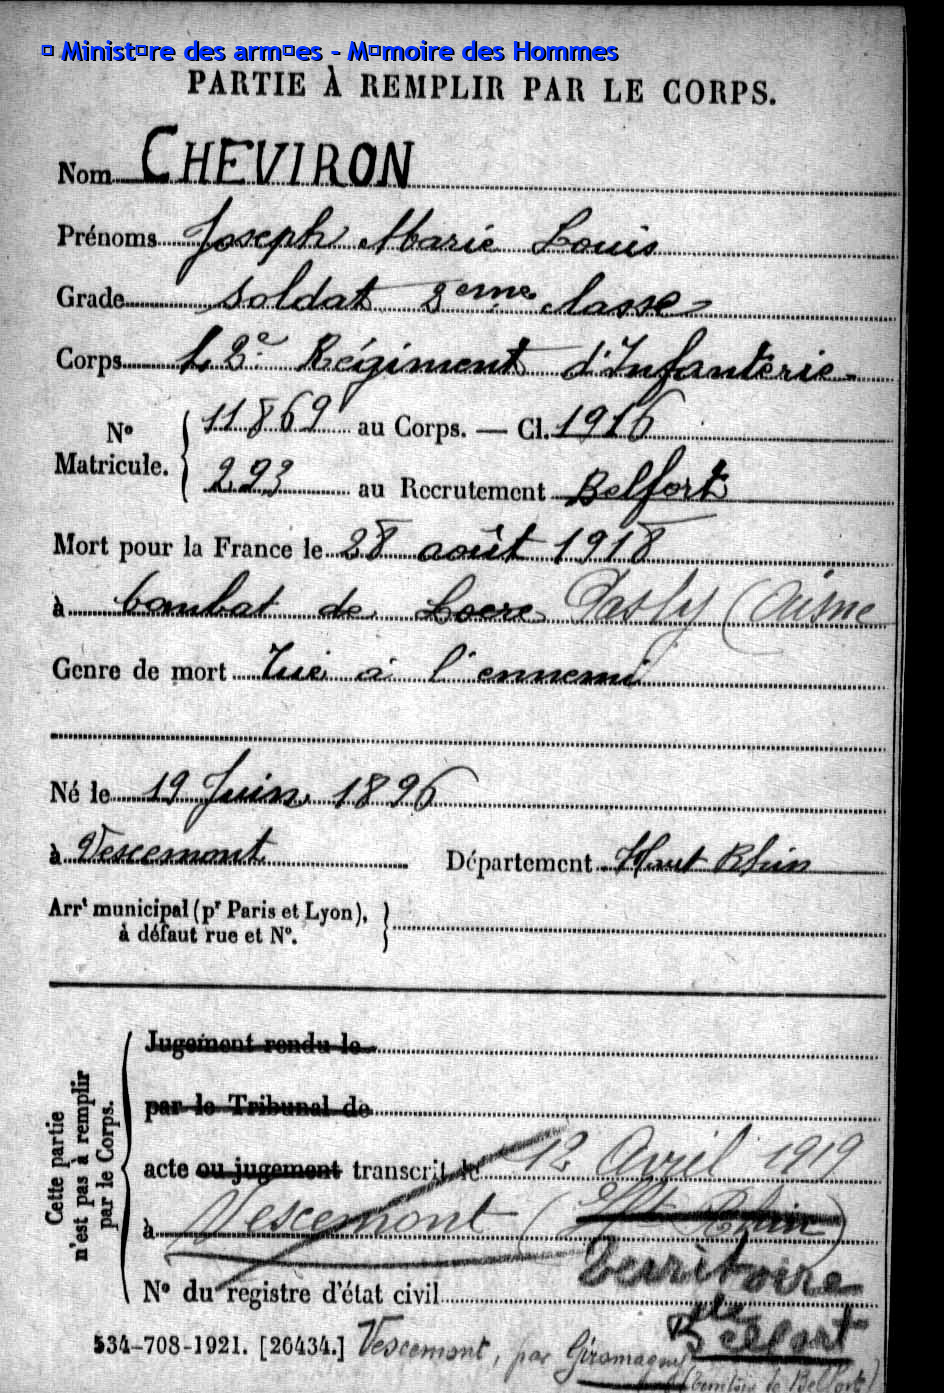 � Minist�re des arm�es - M�moire des Hommes
PARTIE À REMPLIR PAR LE CORPS.
Nom CHEVIRON
Prénoms Joseph Marie Louis
Grade soldat 2ème classe
Corps 42e Régiment d'Infanterie
No Matricule. { 11869 au Corps. — Cl. 1916
293 au Recrutement Belfort
Mort pour la France le 28 août 1918
à Combat de Pasly (Aisne
Genre de mort Tué à l'ennemi
Né le 19 Juin 1896
à Vescemont Département Haut Rhin
Arrt municipal (pr Paris et Lyon),
à défaut rue et No.
Cette partie
n'est pas à remplir
par le Corps.
Jugement rendu le
par le Tribunal de
acte ou jugement transcrit le 12 Avril 1919
à Vescemont (Ht Rhin)
Territoire
No du registre d'état civil
de
Belfort
534-708-1921. [26434.] Vescemont, par Giromagny
(Territoire de Belfort)